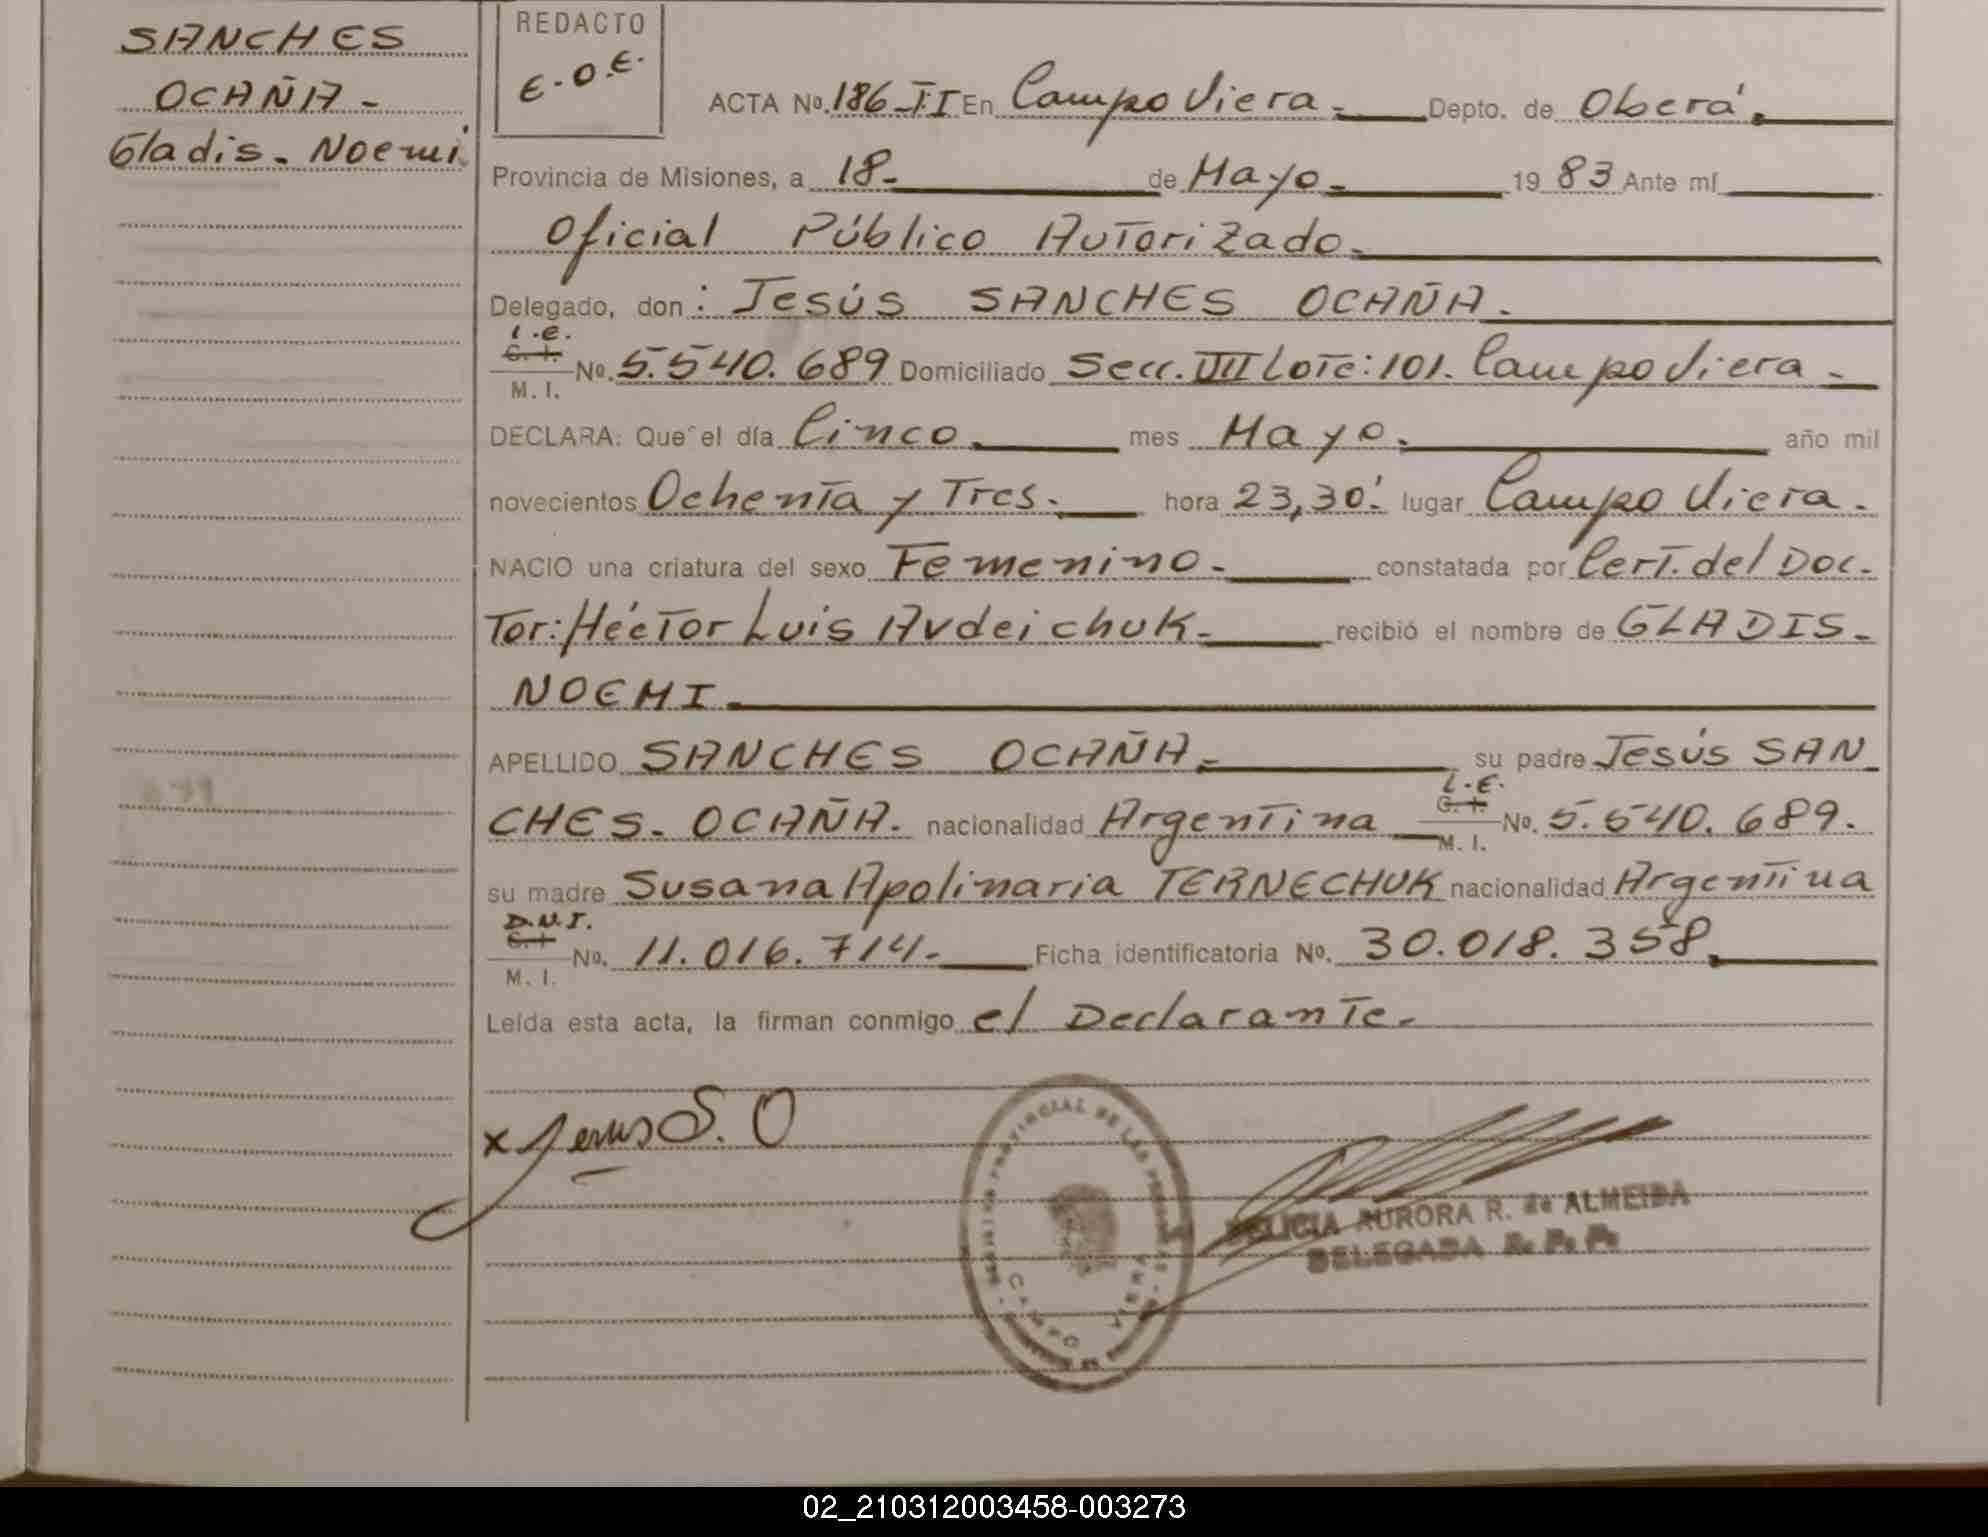 SANCHES
OCAÑA -
Gladis - Noemi
REDACTO
E.O.E.
ACTA No. 186 - II En Campo Viera. Depto. de Oberá.
Provincia de Misiones, a 18 - de Mayo - 19 83 Ante mí
Oficial Público Autorizado.
Delegado, don : Jesús SANCHES OCAÑA.
L.E.
C. I.
M. I. No. 5.540.689 Domiciliado Secc. VIII Lote: 101. Campo Viera -
DECLARA: Que el día Cinco. mes Mayo. año mil
novecientos Ochenta y Tres. hora 23,30'. lugar Campo Viera.
NACIO una criatura del sexo Femenino. constatada por Cert. del Doc-
tor: Héctor Luis Avdeichuk - recibió el nombre de GLADIS -
NOEMI
APELLIDO SANCHES OCAÑA - su padre Jesús SAN
L.E.
C. I.
CHES - OCAÑA. nacionalidad Argentina M. I. No. 5.540.689.
su madre Susana Apolinaria TERNECHUK nacionalidad Argentina
D.N.I.
C. I.
M. I. No. 11.016.714 - Ficha identificatoria No. 30.018.358
Leída esta acta, la firman conmigo el Declarante -
x Jesus S. O
PROVINCIAL DE LAS PERSONAS
CAMPO VIERA
FELICIA AURORA R. de ALMEIDA
DELEGADA R. P. P.
02_210312003458-003273